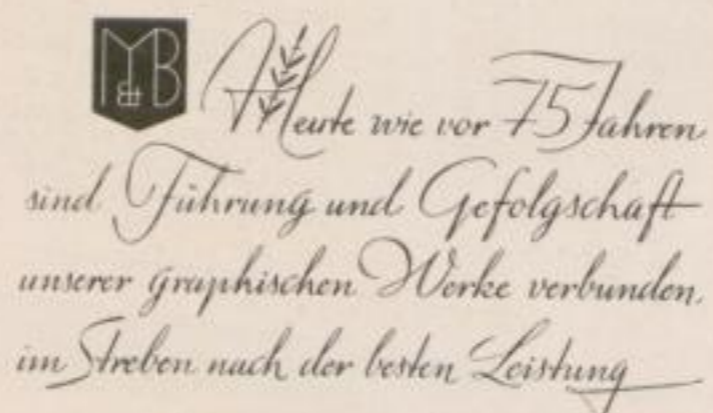 M&B
Heute wie vor 75 Jahren
sind Führung und Gefolgschaft
unserer graphischen Werke verbunden,
im Streben nach der besten Leistung